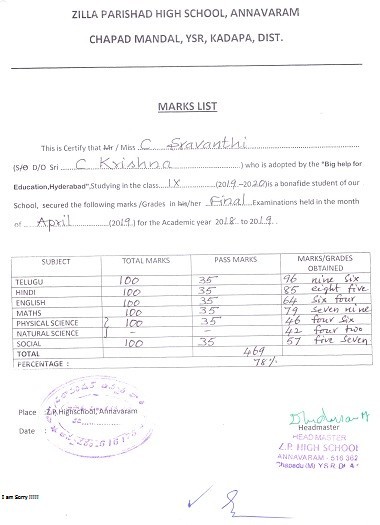 ZILLA PARISHAD HIGH SCHOOL, ANNAVARAM
CHAPAD MANDAL, YSR, KADAPA, DIST.
MARKS LIST
This is Certify that Mr / Miss C Sravanthi
(S/o D/O Sri C Krishna ) who is adopted by the "Big help for
Education,Hyderabad",Studying in the class IX (2019-2020)is a bonafide student of our
School, secured the following marks /Grades in his/her Final Examinations held in the month
of April (2019) for the Academic year 2018 to 2019.
SUBJECT TOTAL MARKS PASS MARKS MARKS/GRADES OBTAINED
TELUGU 100 35 96 nine six
HINDI 100 35 85 eight five
ENGLISH 100 35 64 six four
MATHS 100 35 79 seven nine
PHYSICAL SCIENCE 100 35 46 four six
NATURAL SCIENCE - - 42 four two
SOCIAL 100 35 57 five seven
TOTAL 469
PERCENTAGE : 78%
Place : Z.P.Highschool, Annavaram
Date :
Headmaster
HEAD MASTER
Z.P. HIGH SCHOOL
ANNAVARAM - 516 362
Chapadu (M) Y S R
I am Sorry !!!!!